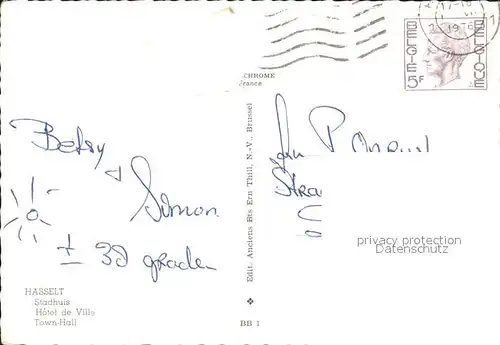 BELGIE
BELGIQUE
5F
1976
CHROME
France
Betsy
Simon
± 30 graden
HASSELT
Stadhuis
Hôtel de Ville
Town-Hall
Edit. Anciens Ets Ern Thill, N.-V., Brussel
BB 1
Stra
privacy protection
Datenschutz